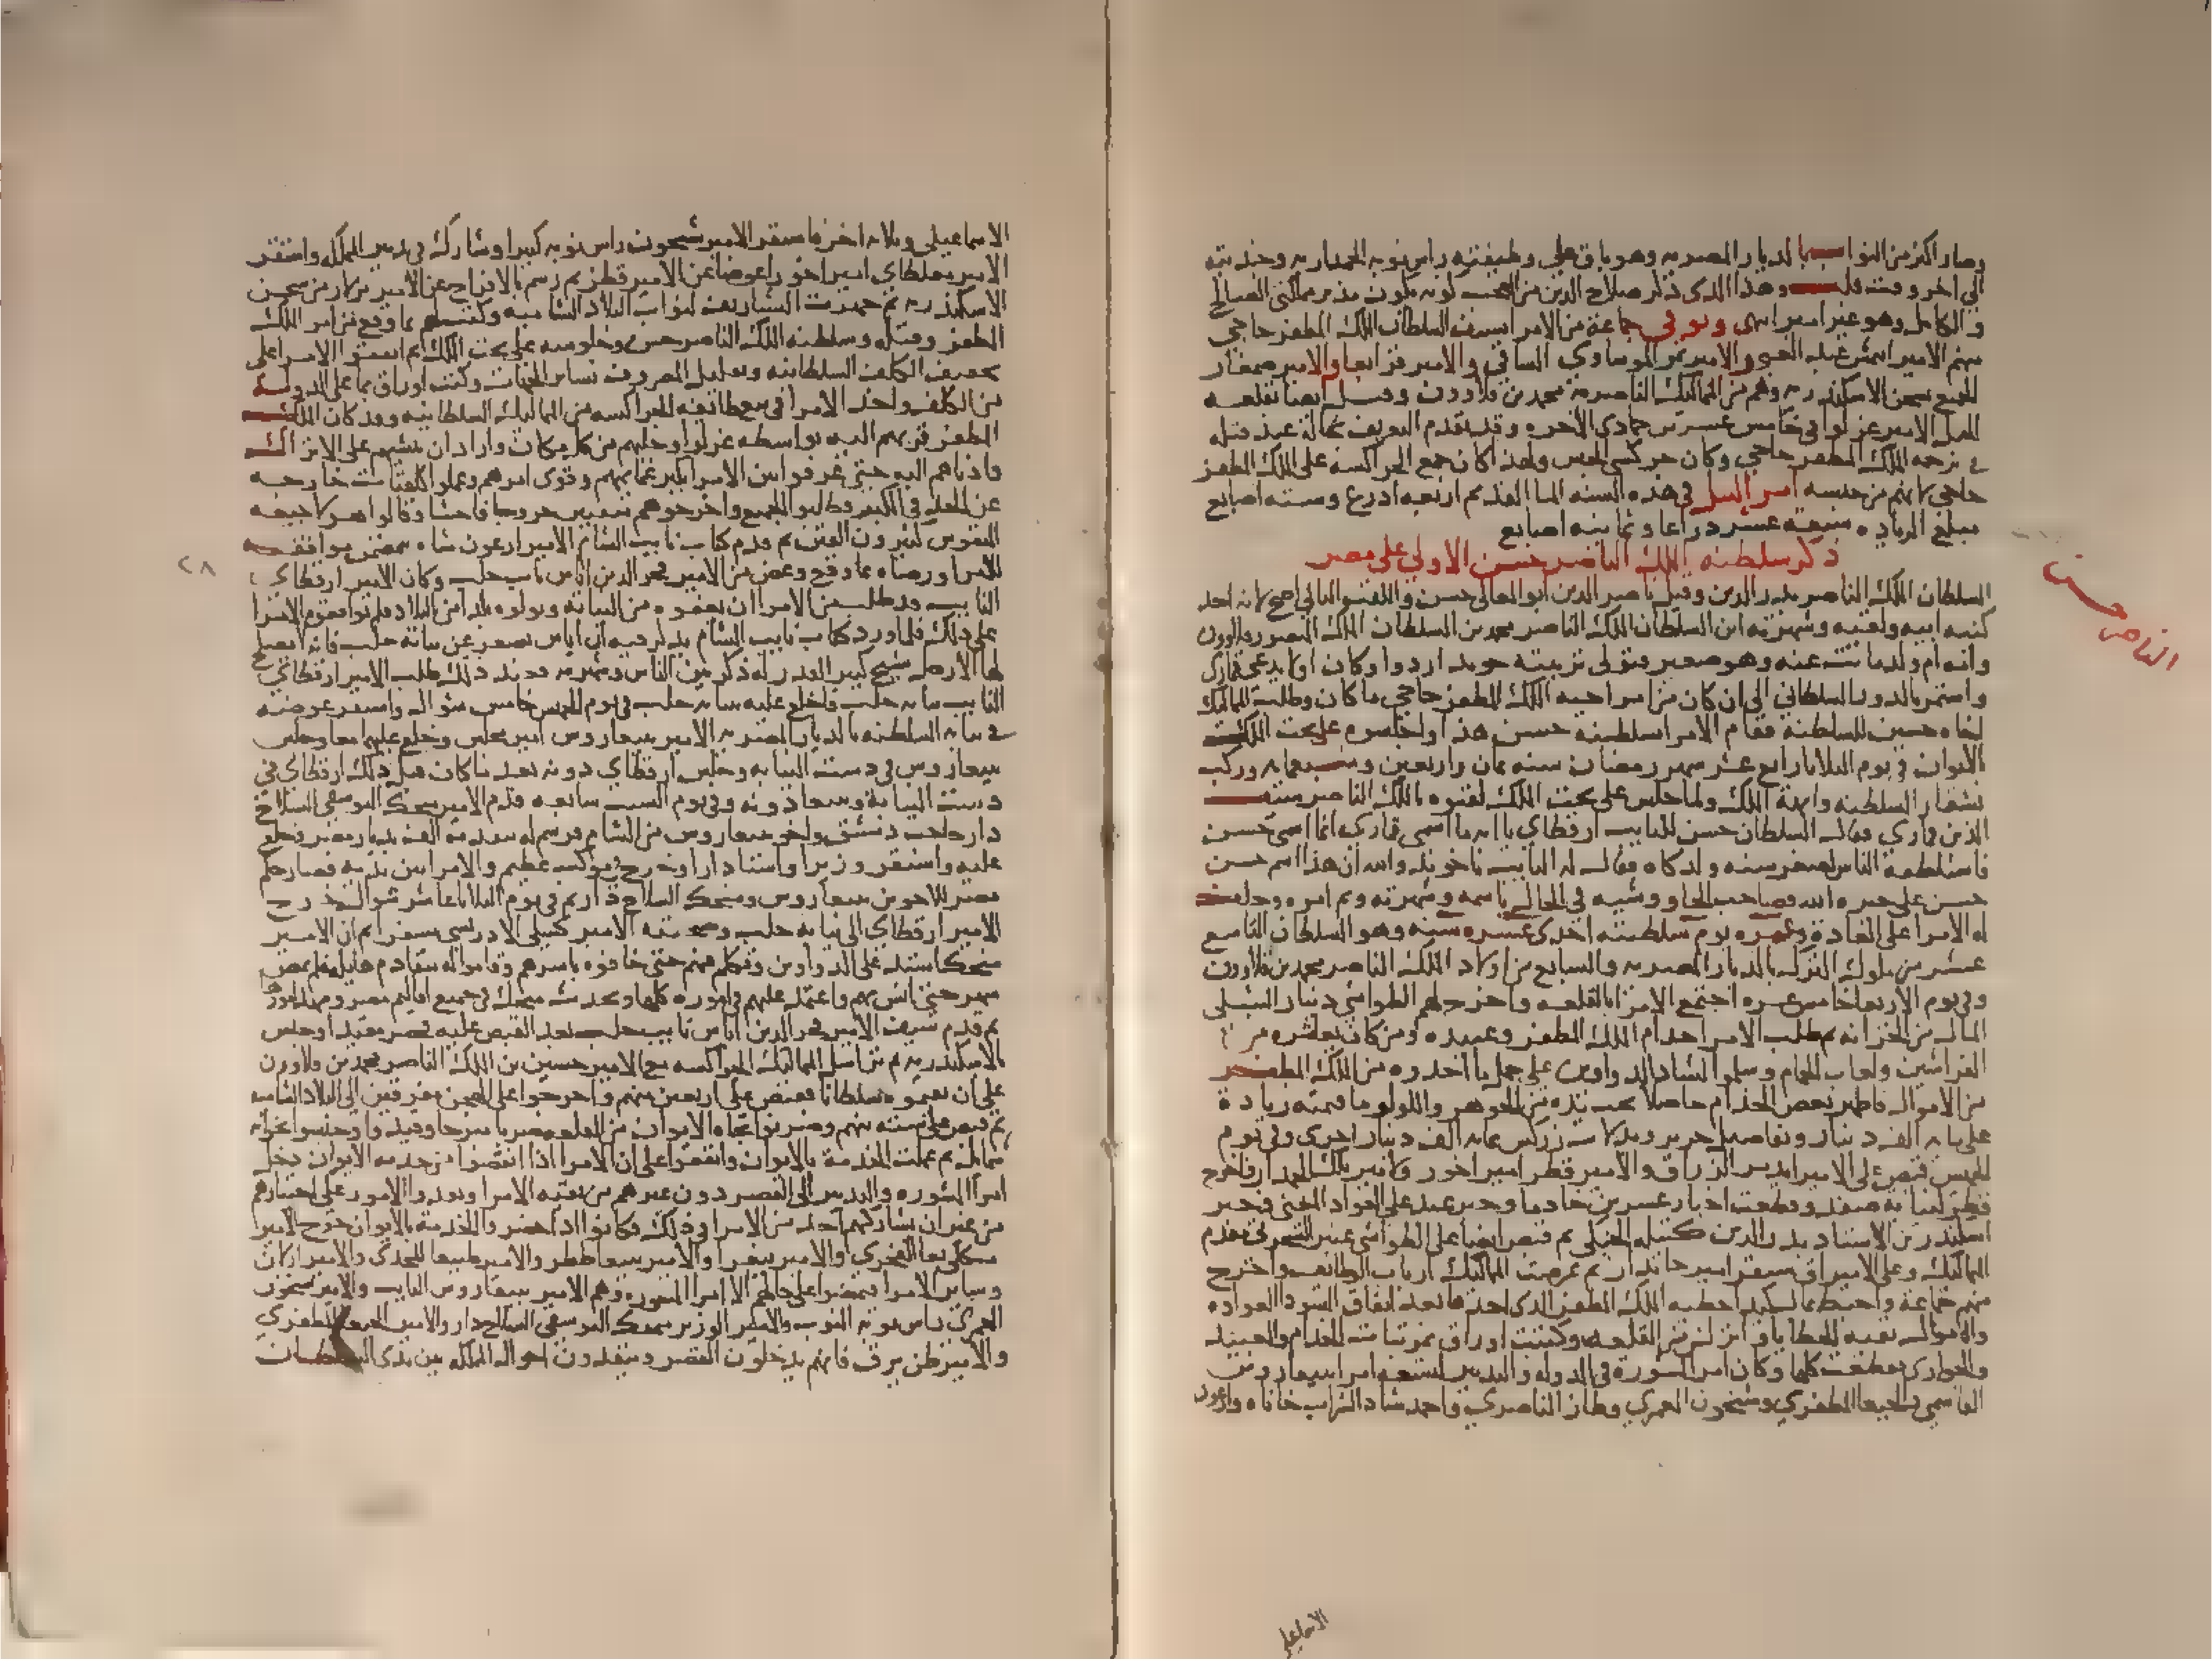 وصار اكبر من النواب بالديار المصريه وهو باق على وظيفته راس نوبه الجمداريه وجند تبه
الى اخر وقت قلت وهذا الذى ذكر صلاح الدين من العجب كونه يكون مدبر مملكتى الصالح
والكامل وهو غير امير انتهى وتوفى جماعة من الامرا بسيف السلطان الملك المظفر حاجى
منهم الامير ايتمش عبد الغنى والامير تمر الموساوى الساقى والامير قرابغا والامير صمغار
الجميع بسجن الاسكندريه وهم من المماليك الناصريه محمد بن قلاوون وقتل ايضا بقلعه
الجبل الامير غرلوا فى خامس عشرين جمادى الاخره وقد تقدم التعريف بحاله عند قتله
فى ترجمه الملك المظفر حاجى وكان جركسى الجنس ولهذا كان جمع الجراكسه على الملك المظفر
حاجى لانهم من جنسه امر النيل فى هذه السنه الما القديم اربعه ادرع وسته اصابع
مبلغ الزياده سبعه عشر دراعا وثمانيه اصابع
ذكر سلطنه الملك الناصر حسن الاولى على مصر
السلطان الملك الناصر بدر الدين وقيل ناصر الدين ابو المعالى حسن واللقب الثانى اصح لانه اخذ
كنيه ابيه ولقبه وشهرته ابن السلطان الملك الناصر محمد بن السلطان الملك المنصور قلاوون
وامه ام ولد ماتت عنه وهو صغير فتولى تربيته خوند اردوا وكان اولا يدعى قمارى
واستمر بالدور السلطانى الى ان كان من امر اخيه الملك المظفر حاجى ما كان وطلبت المماليك
اخاه حسين للسلطنه فقام الامرا بسلطنه حسن هذا واجلسوه على تخت الملك
بالايوان فى يوم الثلاثا رابع عشر شهر رمضان سنه ثمان واربعين وسبعمايه وركب
بشعار السلطنه وابهة الملك ولما جلس على تخت الملك لقبوه بالملك الناصر سيف
الدين قمارى فقال السلطان حسن للنايب ارقطاى يا ابه ما اسمى قمارى انما اسمى حسن
فاستلطفه الناس لصغر سنه ولذكاه فقال له النايب ياخوند والله ان هذا اسم حسن
حسن على خيره الله وصاحب الحال ووشيه فى الحال باسمه وشهرته وتم امره وحلفت
له الامرا على العادة وعمره يوم سلطنته احدى عشره سنه وهو السلطان التاسع
عشر من ملوك الترك بالديار المصريه والسابع من اولاد الملك الناصر محمد بن قلاوون
وفى يوم الاربعا خامس عشره اجتمع الامرا بالقلعه واخرج لهم الطواشى دينار الشبلى
المال من الخزانه ثم طلب الامرا خدام الملك المظفر وعبيده ومن كان يعاشره من
الفراشين ولعاب الحمام وسلموا لشاد الدواوين على حمل ما اخذوه من الملك المظفر
من الاموال فاظهر بعض الخدام حاصلا تحت يده من الجوهر واللولو ما قيمته زيادة
على مايه الف دينار وتفاصيل حرير وبدلات زركش بمايه الف دينار اخرى وفى يوم
الخميس قبض على الامير ايدمر الزراق والامير قطز امير اخور والامير بلك الجمدار فاخرج
قطز لنيابه صفد وقطعت اخباز عشرين خادما وخبز عبد على العواد المغنى وخبز
اسكندر بن الاستاد بدر الدين كتيله الجنكى ثم قبض ايضا على الطواشى عنبر السحرتى مقدم
المماليك وعلى الامير اق سنقر امير جاندار ثم عرضت المماليك ارباب الوظايف واخرج
منهم جماعة واحيط بمال كيدا حظيه الملك المظفر الذى اخذها بعد اتفاق السودا العواده
والاموال بقيه الحظايا وانزلن من القلعه وكتبت اوراق بمرتبات الخدام والعبيد
والجوارى فقطعت كلها وكان امر المشوره فى الدوله والتدبير لتسعه امرا بيبغاروس
القاسمى والجيبغا المظفرى وشيخون العمرى وطاز الناصرى واحمد شاد الشراب خاناه وارغون
الناصر حسن
الاسماعيلى
الاسماعيلى وثلاثه اخر فاستقر الامير شيخون راس نوبه كبيرا وشارك فى تدبير المملكه واستقر
الامير مغلطاى امير اخور عوضا عن الامير قطز ثم رسم بالافراج عن الامير بزلار من سجن
الاسكندريه ثم جهزت التشاريف لنواب البلاد الشاميه وكتب لهم بما وقع من امر الملك
المظفر وقتله وسلطنه الملك الناصر حسن وجلوسه على تخت الملك ثم اتفقوا الامرا على
تخفيف الكلف السلطانيه وتقليل المصروف بساير الجهات وكتبت اوراق بما على الدوله
من الكلف واخذ الامرا فى بيع طائفه الجراكسه من المماليك السلطانيه وقد كان الملك
المظفر قربهم اليه بواسطه غرلوا وجلبهم من كل مكان واراد ان ينشيهم على الاتراك
وادناهم اليه حتى عرفوا بين الامرا بكبر عمايمهم وقوى امرهم وعملوا كلفتات خارجه
عن الحد فى الكبر فطلبوا الجميع واخرجوهم منفيين خروجا فاحشا وقالوا هولا جيعه
النفوس كثيرون الفتن ثم قدم كتاب نايب الشام الامير ارغون شاه يتضمن موافقته
للامرا ورضاه بما وقع وغض من الامير فخر الدين اياس نايب حلب وكان الامير ارقطاى
النايب قد طلب من الامرا ان يعفوه من النيابه ويولوه بلدا من البلاد فلم يوافقوه الامرا
على ذلك فلما ورد كتاب نايب الشام يذكر فيه ان اياس يصغر عن نيابة حلب فانه لا يصلح
لها الا رجل شيخ كبير القدر له ذكر بين الناس وشهره فعند ذلك طلب الامير ارقطاى
النايب نيابه حلب فخلع عليه بنيابه حلب فى يوم الخميس خامس شوال واستقر عوضه
فى نيابه السلطنه بالديار المصريه الامير بيبغاروس امير مجلس وخلع عليهما معا وجلس
بيبغاروس فى دست النيابه وجلس ارقطاى دونه بعد ما كان قبل ذلك ارقطاى فى
دست النيابة وبيبغا دونه وفى يوم السبت سابعه قدم الامير منجك اليوسفى السلاح
دار حاجب دمشق واخو بيبغاروس من الشام فرسم له بتقدمه الف بديار مصر وخلع
عليه واستقر وزيرا واستادارا وخرج فى موكب عظيم والامرا بين يديه فصار حكم
مصر للاخوين بيبغاروس ومنجك السلاح دار ثم فى يوم الثلاثا عاشر شوال خرج
الامير ارقطاى الى نيابه حلب وصحبته الامير كشلى الادريسى مسفرا ثم ان الامير
منجك اشتد على الدواوين وتكلم فيهم حتى خافوه باسرهم وقاموا له بتقادم هايله فلم يمض
شهر حتى انس بهم واعتمد عليهم فى اموره كلها وتحدث منجك فى جميع اقاليم مصر ومهد امورها
ثم قدم سيف الامير فخر الدين اياس نايب حلب بعد القبض عليه فحضر مقيدا وحبس
بالاسكندريه ثم تراسل المماليك الجراكسه مع الامير حسين بن الملك الناصر محمد بن قلاوون
على ان يقيموه سلطانا فقبض على اربعين منهم واخرجوا على الهجن مفرقين الى البلاد الشاميه
ثم قبض على سته منهم وضربوا تجاه الايوان من القلعه ضربا مبرحا وقيدوا وحبسوا بخزانه
شمايل ثم عملت الخدمة بالايوان واتفقوا على ان الامرا اذا انفضوا من خدمه الايوان دخل
امرا المشوره والتدبير الى القصر دون غيرهم من بقيه الامرا ونفدوا الامور على اختيارهم
من غير ان يشاركهم احد من الامرا فى ذلك فكانوا اذا حضروا الخدمه بالايوان خرج الامير
منكلى بغا الفخرى والامير بيغرا والامير بيبغا ططر والامير طيبغا المجدى والامير ارلان
وساير الامرا فيمضوا على حالهم الا امرا المشوره وهم الامير بيبغاروس النايب والامير شيخون
العمرى راس نوبه النوب والامير الوزير منجك اليوسفى السلاح دار والامير الجيبغا المظفرى
والامير طنيرق فانهم يدخلون القصر وينفدون احوال المملكه بين يدى السلطان
٢٨